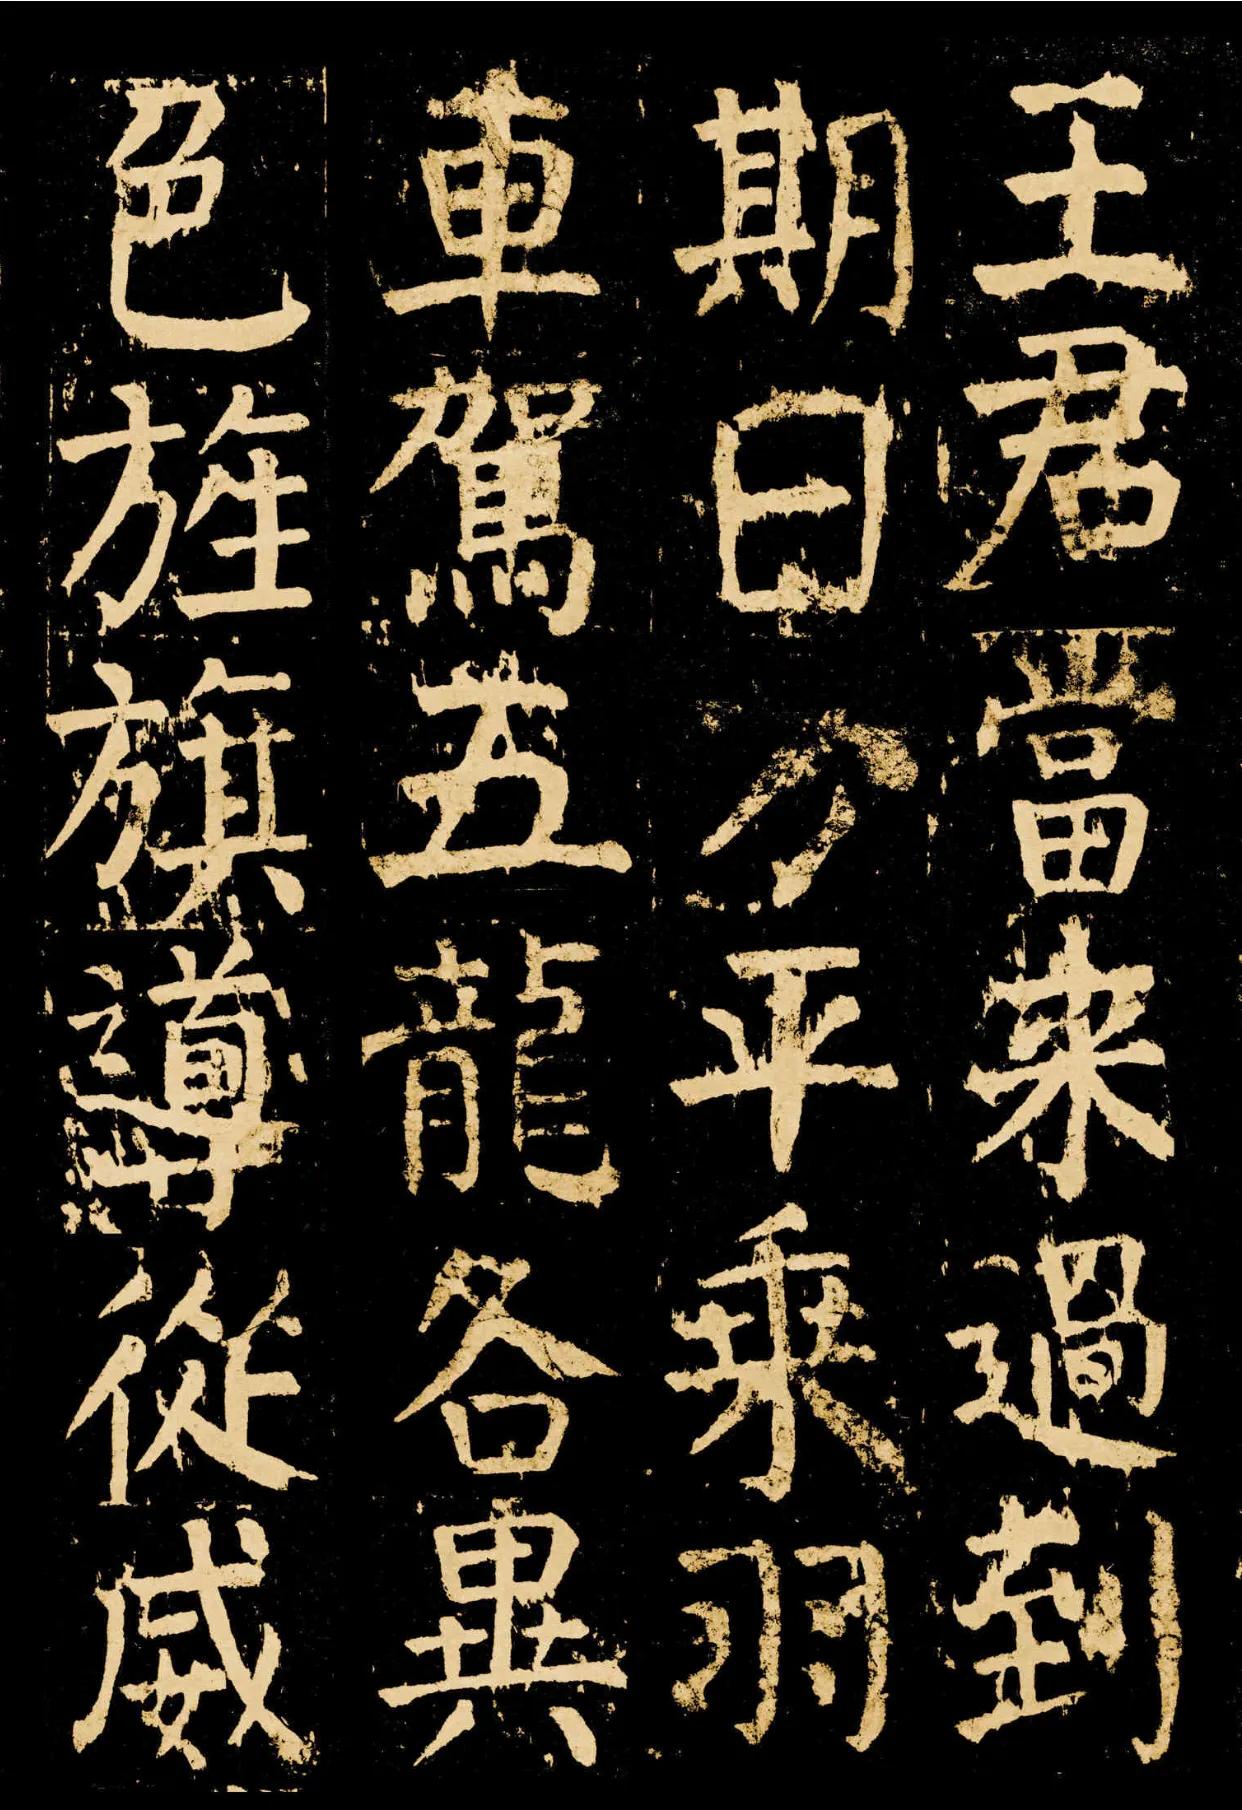 王君當來過到
期日方平乘羽
車駕五龍各異
色旌旗導從威